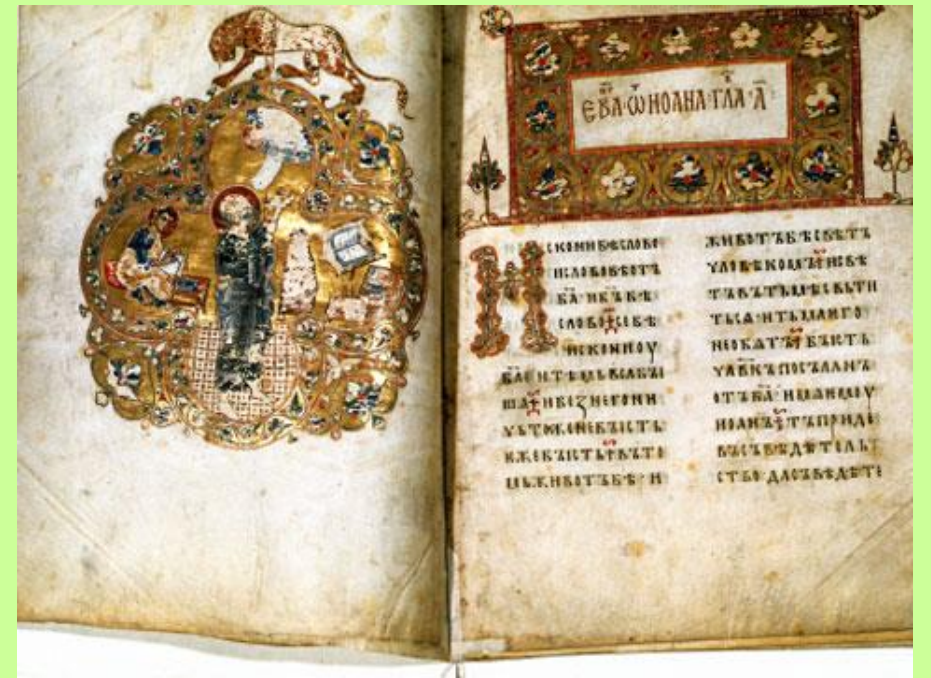 ЕВА҃·Ѿ ИОАНА·ГЛА·А҃·
ИСКОНИБѢСЛОВО
ИСЛОВОБѢОТЪ
БА҃·ИБЪ·БѢ·
СЛОВО·СЕБѢ
ИСКОНИОУ
БА҃·ИТѢМЬВСѦБЫ
ШѦ·ИБЕЗНЕГОНИ
ЧЬТОЖЕНЕБЫСТЬ·
ѤЖЕБЫСТЬ·ВЪТО
МЬЖИВОТЪБѢ·И
ЖИВОТЪБѢСВѢТЪ
ЧЛОВѢКОМЪ·ИСВѢ
ТЪВЪТЬМѢСВЬТИ
ТЬСѦ·ИТЬМАѤГО
НЕОБѦТЪ·БЫСТЬ
ЧЛ҃ВКЪПОСЪЛАНЪ
ОТЪБА҃·ИМѦѤМОУ
ИОАНЪ·ТЪПРИДЕ
ВЪСЪВѢДѢТЕЛЬ
СТВО·ДАСЪВѢДѢТЕ